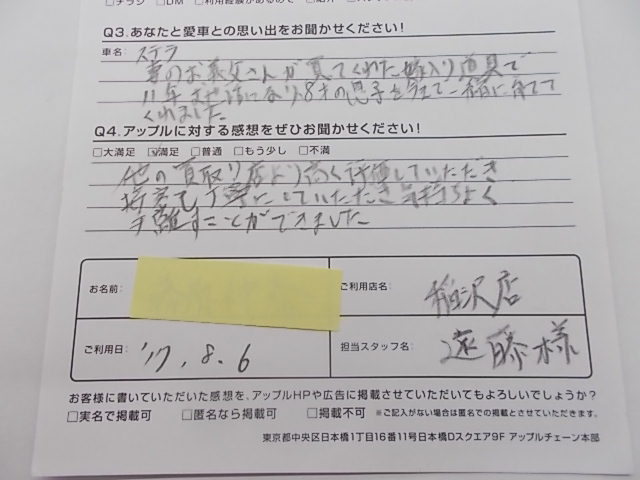 □チラシ □DM □利用経験があるので □紹介
Q3.あなたと愛車との思い出をお聞かせください!
車名: ステラ
妻のお義父さんが買てくれた嫁入り道具で
11年お世話になり8才の息子を今まで一緒に育てて
くれました。
Q4.アップルに対する感想をぜひお聞かせください!
□大満足 ☑満足 □普通 □もう少し □不満
他の買取り店より高く評価していただき
接客も丁寧にしていただき気持ちよく
手離すことができました
お名前:
ご利用店名: 稲沢店
ご利用日: '17.8.6
担当スタッフ名: 遠藤様
お客様に書いていただいた感想を、アップルHPや広告に掲載させていただいてもよろしいでしょうか?
□実名で掲載可 □匿名なら掲載可 □掲載不可 ※ご記入がない場合は匿名での掲載とさせていただきます。
東京都中央区日本橋1丁目16番11号日本橋Dスクエア9F アップルチェーン本部